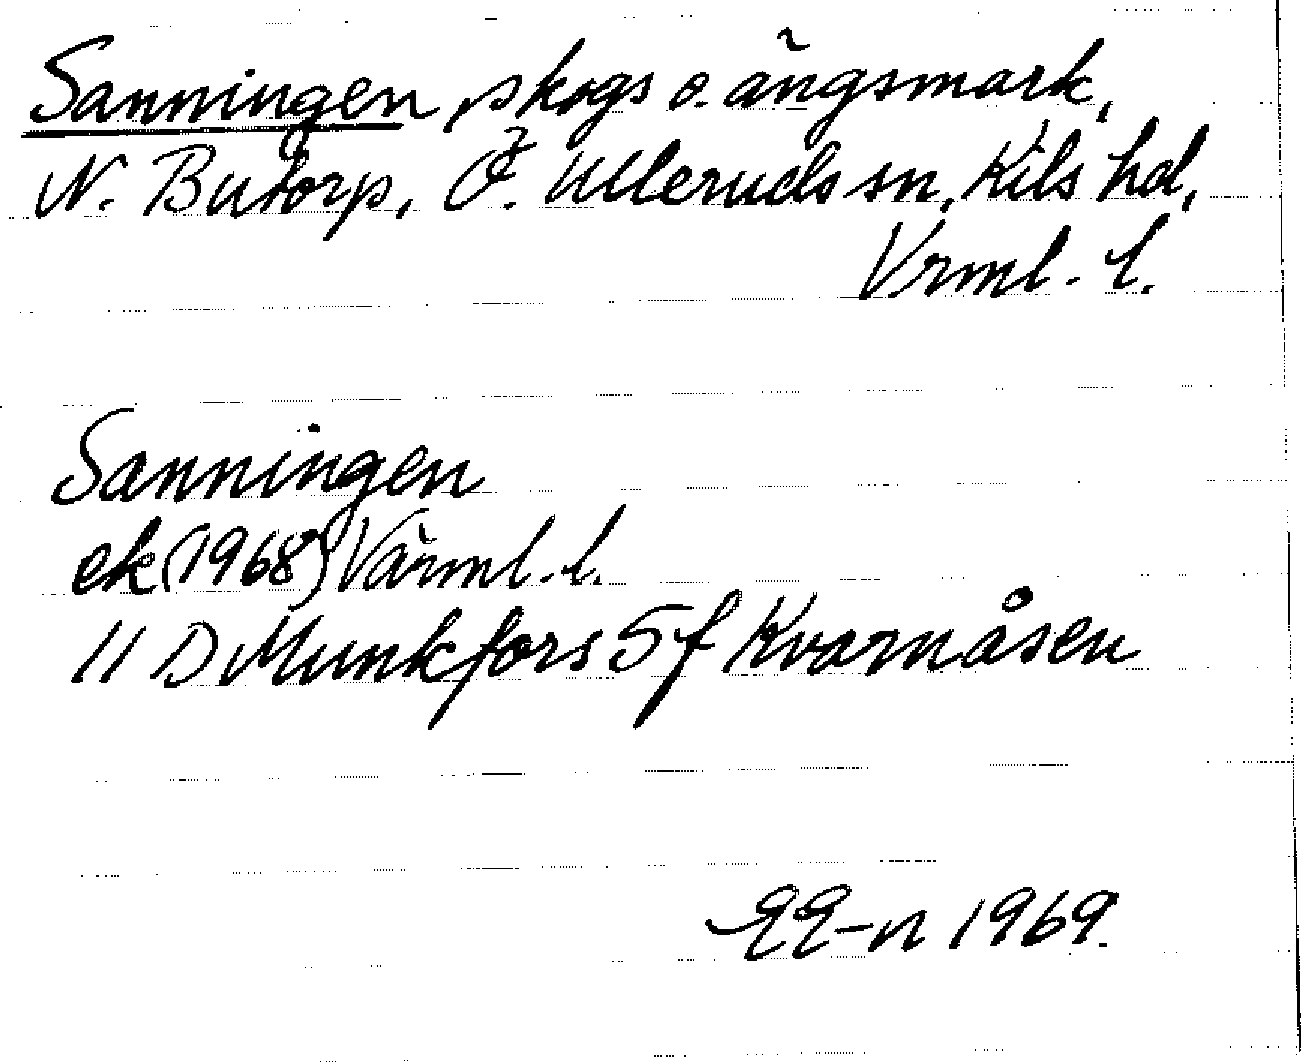 Sanningen, skogs o. ängsmark,
N. Butorp, Ö. Ulleruds sn, Kils hd,
Vrml. l.
Sanningen
ek (1968) Värml. l.
11 D Munkfors 5 f Kvarnåsen
EE-n 1969.